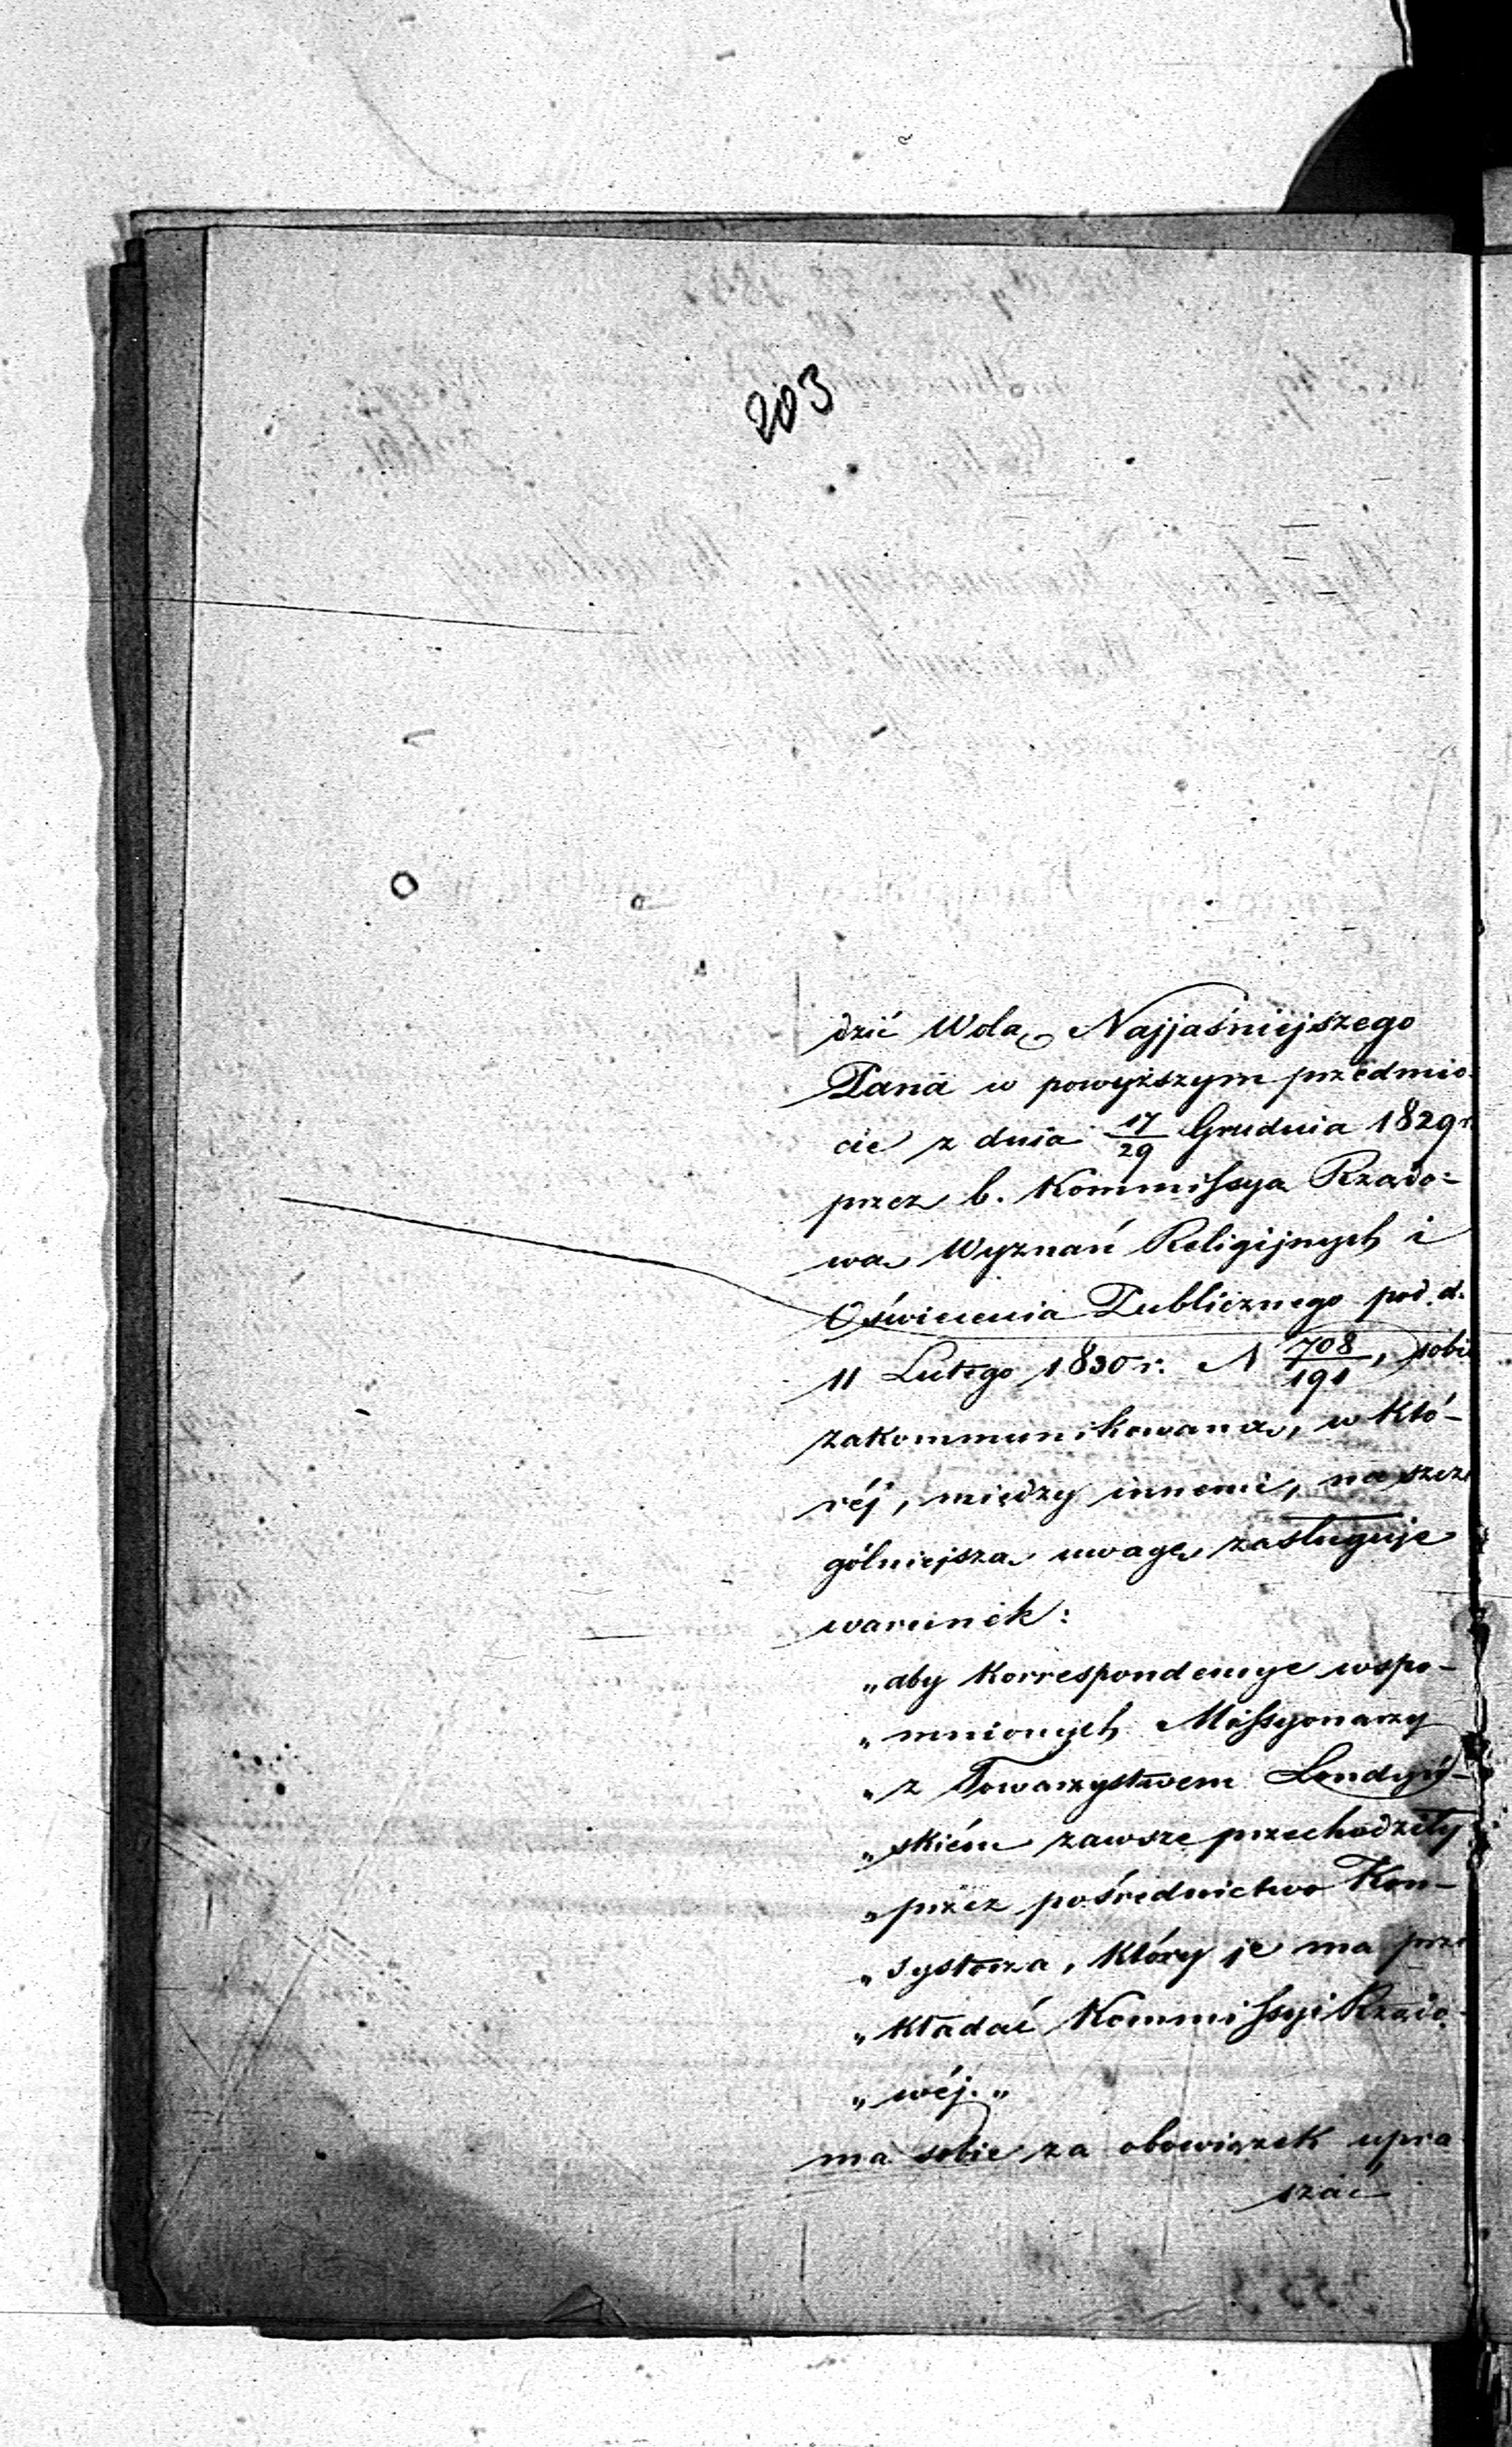 203
dzić Wolą Najjaśniejszego
Pana w powyższym przedmio-
cie z dnia 17/29 Grudnia 1829 r.
przez b. Kommissyą Rządo-
wą Wyznań Religijnych i
Oświecenia Publicznego pod d.
11 Lutego 1830 r. N 708/191, sobie
zakommunikowaną, w któ-
réj, między innemi, na szcze
gólniejszą uwagę zasługuje
warunek:
„aby korrespondencye wspo-
„mnionych Missyonarzy
„z Towarzystwem Londyń-
„skiém zawsze przechodziły
„przez pośrednictwo Kon-
„systorza, który je ma prze
„kładać Kommissyi Rządo-
„wéj."
ma sobie za obowiązek upra
szać